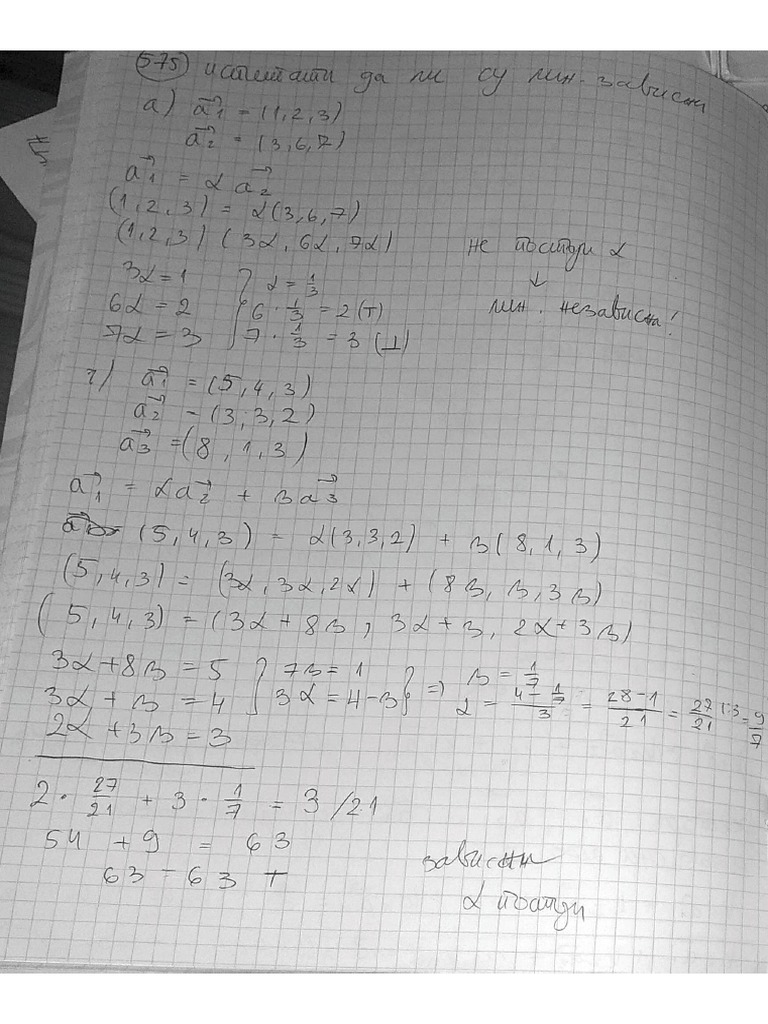 575 испитати да ли су лин. зависни
а) a₁ = (1, 2, 3)
a₂ = (3, 6, 7)
a₁ = α a₂
(1, 2, 3) = α(3, 6, 7)
(1, 2, 3) (3α, 6α, 7α)
не постоји α
↓
лин. независни!
3α = 1 } α = 1/3
6α = 2 } 6 · 1/3 = 2 (T)
7α = 3 } 7 · 1/3 = 3 (⊥)
г) a₁ = (5, 4, 3)
a₂ = (3, 3, 2)
a₃ = (8, 1, 3)
a₁ = αa₂ + βa₃
(5, 4, 3) = α(3, 3, 2) + β(8, 1, 3)
(5, 4, 3) = (3α, 3α, 2α) + (8β, β, 3β)
(5, 4, 3) = (3α + 8β, 3α + β, 2α + 3β)
3α + 8β = 5 } 7β = 1 } ⇒ β = 1/7
3α + β = 4 } 3α = 4 - β } α = (4 - 1/7)/3 = (28 - 1)/21 = 27/21 |:3 = 9/7
2α + 3β = 3
2 · 27/21 + 3 · 1/7 = 3 /21
54 + 9 = 63
63 = 63 T
зависни
α постоји